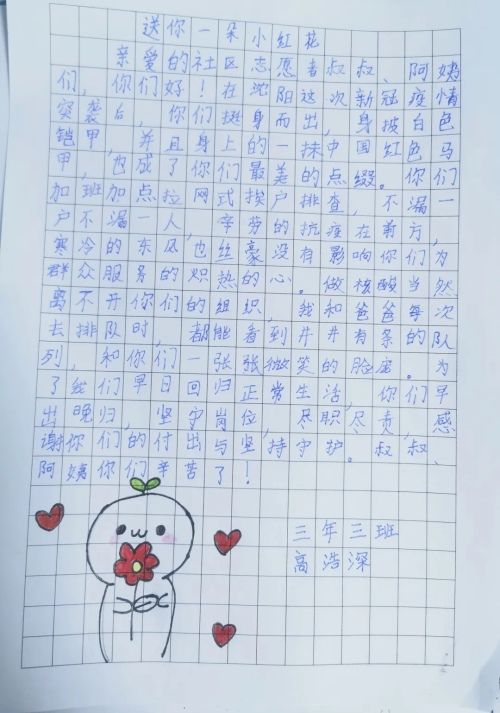 送你一朵小红花
亲爱的社区志愿者叔叔、阿姨
们，你们好！在沈阳这次新冠疫情
突袭后，你们挺身而出，身披白色
铠甲，并且身上的一抹中国红色马
甲，也成了你们最美的点缀。你们
加班加点拉网式挨户排查，不漏一
户不漏一人，辛劳的抗疫在前方，
寒冷的东风也丝豪没有影响你们为
群众服务的炽热的心。做核酸当然
离不开你们的组织，我和爸爸每次
去排队时，都能看到井井有条的队
列，和你们一张张微笑的脸庞。为
了我们早日回归正常生活，你们早
出晚归，坚守岗位，尽职尽责，感
谢你们的付出与坚持守护。叔叔、
阿姨你们辛苦了！
三年三班
高浩深